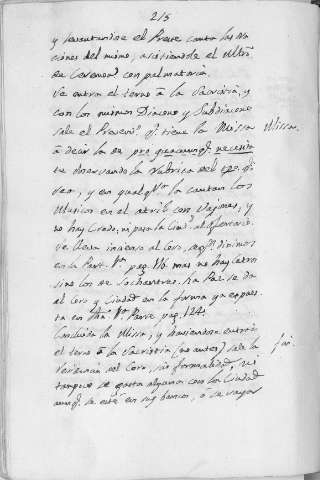 215
y levantandose el Preste canta las Ora
ciones del mismo, asistiendole el Mtro.
de Ceremon.s con palmatoria.
Se entra el terno â la Sacristia, y
con los mismos Diacono y Subdiacono
sale el q.e tiene la Missa Missa.
â decir la de pro quacumq.e necesida
te observando la rubrica del tpo. q.e
sea, y en qualq.a la cantan los
Musicos en el atril con y
no hay Credo, ni passa la Ciud.d al ofertorio.
Se lleva incienso al Coro, diximos
en la Part. 1.a pag. mas no hay
sino los de Sochantres. La Paz se da
al Coro y Ciudad en la forma ya expues
ta en Parte pag. 124.
Concluida la Missa, y haviendose entrado
el terno â la Sacristia (no antes) sale la
del Coro, sin formalidad, ni
tampoco se gasta alguna con la Ciudad
aunq.e se esté en sus bancos, o se vaya